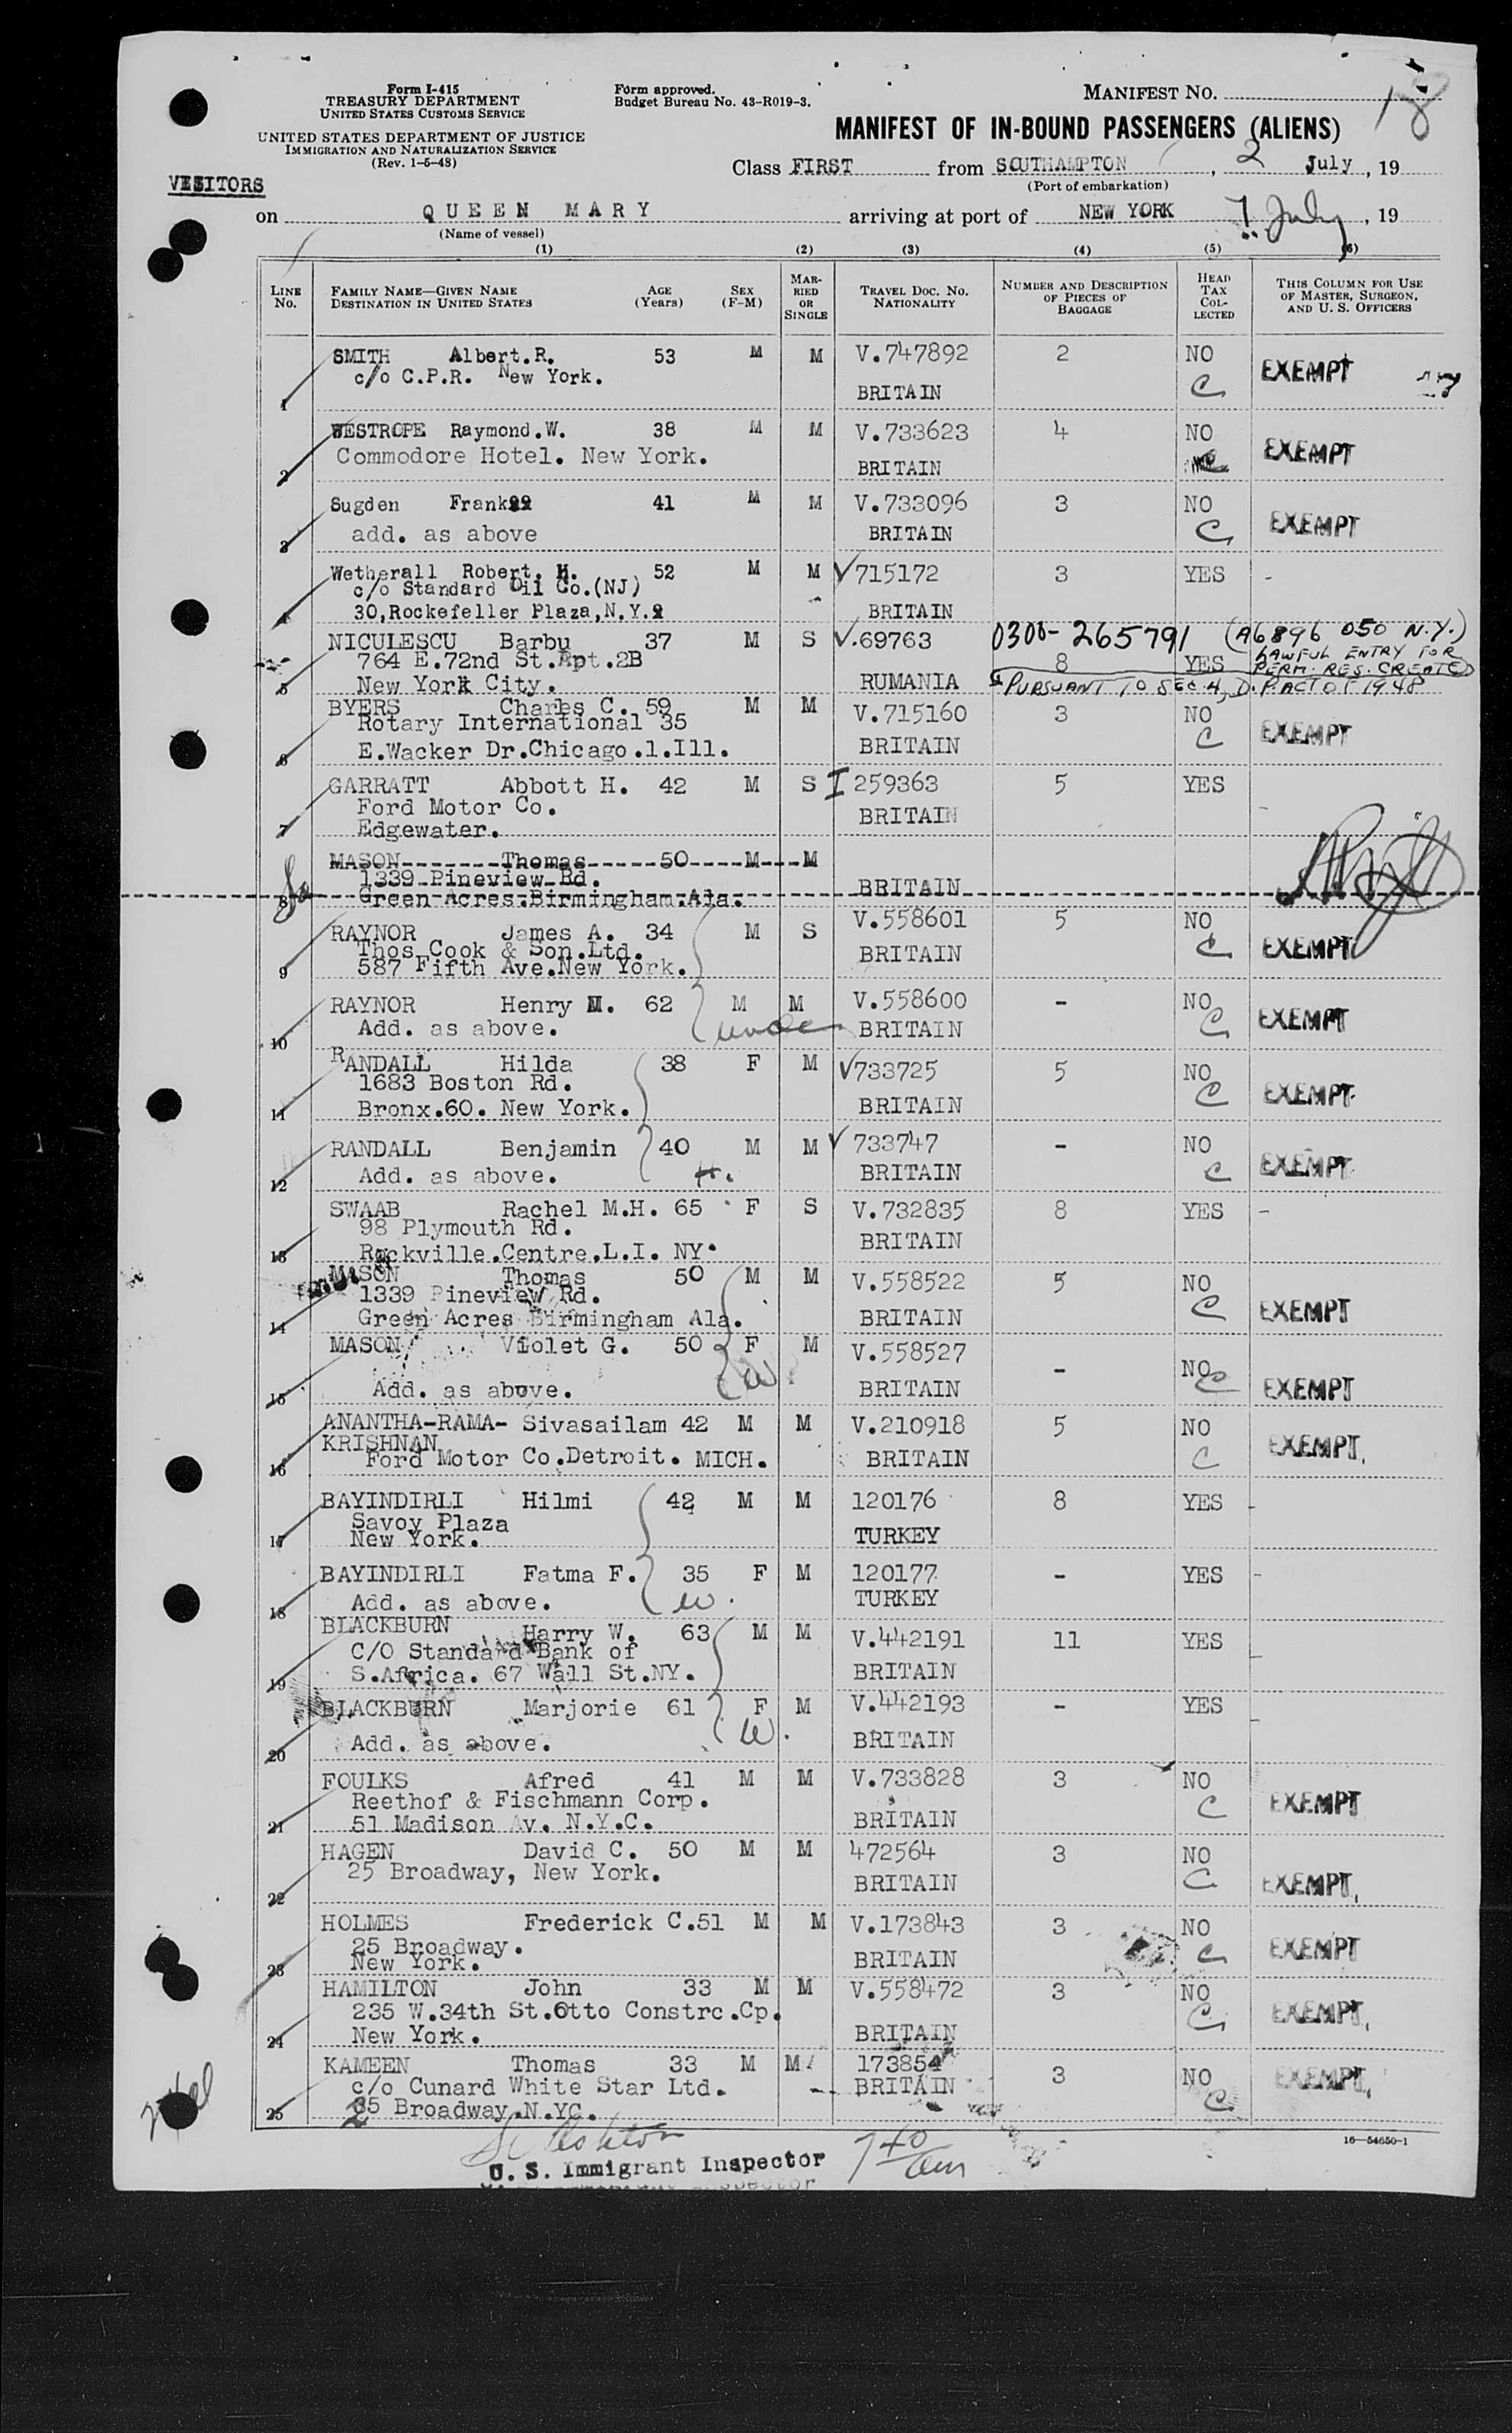 Form I-415
TREASURY DEPARTMENT
UNITED STATES CUSTOMS SERVICE
UNITED STATES DEPARTMENT OF JUSTICE
IMMIGRATION AND NATURALIZATION SERVICE
(Rev. 1-5-48)
Form approved.
Budget Bureau No. 43-R019-3.
MANIFEST NO.
18
MANIFEST OF IN-BOUND PASSENGERS (ALIENS)
Class FIRST from SOUTHAMPTON, 2 July, 19
(Port of embarkation)
VISITORS
on QUEEN MARY arriving at port of NEW YORK 7 July, 19
(Name of vessel)
(1) (2) (3) (4) (5) (6)
LINE No. FAMILY NAME—GIVEN NAME DESTINATION IN UNITED STATES AGE (Years) SEX (F-M) MARRIED OR SINGLE TRAVEL DOC. NO. NATIONALITY NUMBER AND DESCRIPTION OF PIECES OF BAGGAGE HEAD TAX COLLECTED THIS COLUMN FOR USE OF MASTER, SURGEON, AND U. S. OFFICERS
SMITH Albert.R. 53 M M V.747892 2 NO
c/o C.P.R. New York. C EXEMPT
1 BRITAIN
WESTROPE Raymond.W. 38 M M V.733623 4 NO
Commodore Hotel. New York. EXEMPT
2 BRITAIN
Sugden Frank 41 M M V.733096 3 NO
3 add. as above BRITAIN C EXEMPT
Wetherall Robert. H. 52 M M V715172 3 YES -
c/o Standard Oil Co.(NJ)
4 30,Rockefeller Plaza,N.Y. BRITAIN
NICULESCU Barbu 37 M S V.69763 0300-265791 (A6896 050 N.Y.)
764 E.72nd St.Apt.2B 8 YES LAWFUL ENTRY FOR PERM. RES. CREATED
5 New York City. RUMANIA PURSUANT TO SEC. 4, D.P. ACT OF 1948
BYERS Charles C. 59 M M V.715160 3 NO
Rotary International 35 C EXEMPT
6 E.Wacker Dr.Chicago.1.Ill. BRITAIN
GARRATT Abbott H. 42 M S I 259363 5 YES
Ford Motor Co. BRITAIN -
7 Edgewater.
MASON Thomas 50 M M
1339 Pineview Rd.
8 Green Acres.Birmingham.Ala. BRITAIN
RAYNOR James A. 34 M S V.558601 5 NO
Thos Cook & Son.Ltd. C EXEMPT
9 587 Fifth Ave.New York. BRITAIN
RAYNOR Henry M. 62 M M V.558600 - NO
10 Add. as above. uncle BRITAIN C EXEMPT
RANDALL Hilda 38 F M V733725 5 NO
1683 Boston Rd. C EXEMPT
11 Bronx.60. New York. BRITAIN
RANDALL Benjamin 40 M M V 733747 - NO
12 Add. as above. H. BRITAIN C EXEMPT
SWAAB Rachel M.H. 65 F S V.732835 8 YES -
98 Plymouth Rd.
13 Rockville.Centre.L.I. NY. BRITAIN
MASON Thomas 50 M M V.558522 5 NO
1339 Pineview Rd. C EXEMPT
14 Green Acres Birmingham Ala. BRITAIN
MASON Violet G. 50 F M V.558527 - NO
15 Add. as above. W. BRITAIN C EXEMPT
ANANTHA-RAMA- Sivasailam 42 M M V.210918 5 NO
KRISHNAN
16 Ford Motor Co.Detroit. MICH. BRITAIN C EXEMPT.
BAYINDIRLI Hilmi 42 M M 120176 8 YES -
Savoy Plaza
17 New York. TURKEY
BAYINDIRLI Fatma F. 35 F M 120177 - YES -
18 Add. as above. W. TURKEY
BLACKBURN Harry W. 63 M M V.442191 11 YES
C/O Standard Bank of
19 S.Africa. 67 Wall St.NY. BRITAIN
BLACKBURN Marjorie 61 F M V.442193 - YES -
20 Add. as above. W. BRITAIN
FOULKS Afred 41 M M V.733828 3 NO
Reethof & Fischmann Corp. C EXEMPT
21 51 Madison Av. N.Y.C. BRITAIN
HAGEN David C. 50 M M 472564 3 NO
22 25 Broadway, New York. BRITAIN C EXEMPT.
HOLMES Frederick C.51 M M V.173843 3 NO
25 Broadway. C EXEMPT
23 New York. BRITAIN
HAMILTON John 33 M M V.558472 3 NO
235 W.34th St.Otto Constrc.Cp. C EXEMPT.
24 New York. BRITAIN
KAMEEN Thomas 33 M M 173854 3 NO
c/o Cunard White Star Ltd. BRITAIN C EXEMPT.
25 25 Broadway.N.YC.
16—54650-1
U. S. Immigrant Inspector 7 40 am